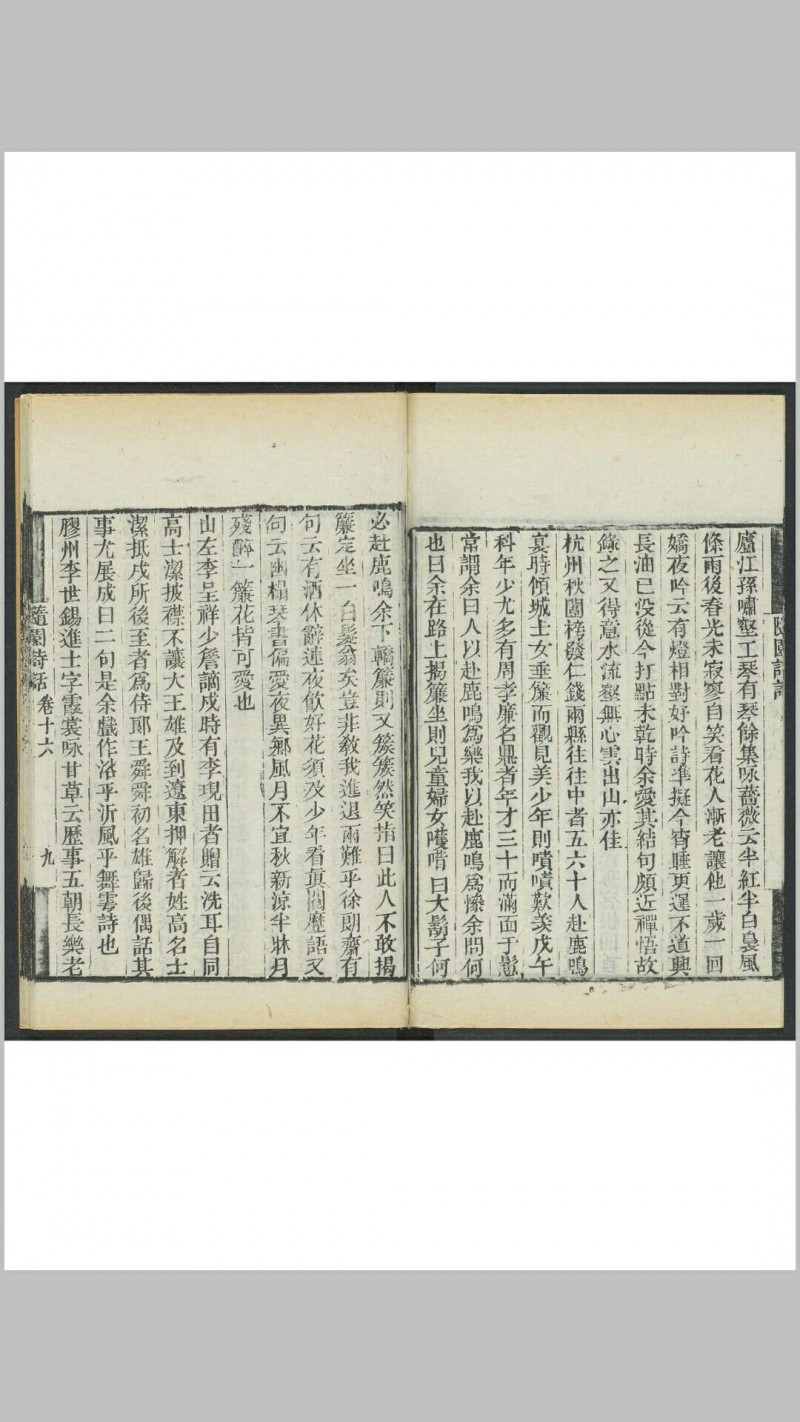 廬江孫嘯壑工琴有琴餘集咏薔薇云半紅半白裊風
條雨後春光未寂寥自笑看花人漸老讓他一歲一回
嬌夜吟云有燈相對好吟詩準擬今宵睡更遲不道興
長油已没從今打點未乾時余愛其結句頗近禪悟故
錄之又得意水流壑無心雲出山亦佳
杭州秋闈榜發仁錢兩縣往往中者五六十人赴鹿鳴
宴時傾城士女垂簾而觀見美少年則嘖嘖歎羨戊午
科年少尤多有周孝廉名鼎者年才三十而滿面于思
常謂余曰人以赴鹿鳴爲樂我以赴鹿鳴爲慘余問何
也曰余在路上揭簾坐則兒童婦女嘆唶曰大鬍子何
必赴鹿鳴余下轎簾則又簇簇然笑指曰此人不敢揭
簾定坐一白髮翁矣豈非教我進退兩難乎徐朗齋有
句云有酒休辭連夜飲好花須及少年看眞閱歷語又
句云幽榻琴書偏愛夜異鄉風月不宜秋新涼半牀月
殘醉一簾花皆可愛也
山左李呈祥少詹謫戍時有李現田者贈云洗耳自同
高士潔披襟不讓大王雄及到遼東押解者姓高名士
潔抵戍所後至者爲侍郞王舜舜初名雄歸後偶話其
事尤展成曰二句是余戲作浴乎沂風乎舞雩詩也
膠州李世錫進士字霞裳咏甘草云歷事五朝長樂老
隨園詩話 卷十六 九